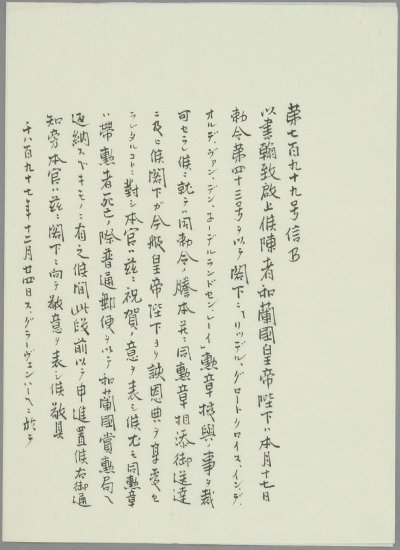 第七百九十九号信B
以書翰致啟上候陳者和蘭國皇帝陛下ハ本月十七日
勅令第四十三号ヲ以テ閣下ニ「リッデル、グロートクロイス、イン、デ、
オルデ、ヴァン、デン、ネーデルランドセン、レーイ」勲章授與ノ事ヲ裁
可セラレ候ニ就テハ同勅令ノ謄本并ニ同勲章相添御送達
ニ及ヒ候閣下カ今般皇帝陛下ヨリ該恩典ヲ享受セ
ラレタルコトニ對シ本官ハ茲ニ祝賀ノ意ヲ表シ候尤モ同勲章
ハ帯勲者死亡ノ際普通郵便ヲ以テ和蘭國賞勲局ヘ
返納スベキモノニ有之候間此段前以テ申進置候右御通
知旁本官ハ茲ニ閣下ニ向テ敬意ヲ表シ候敬具
千八百九十七年十二月廿四日スグラーヴェンハーヘニ於テ